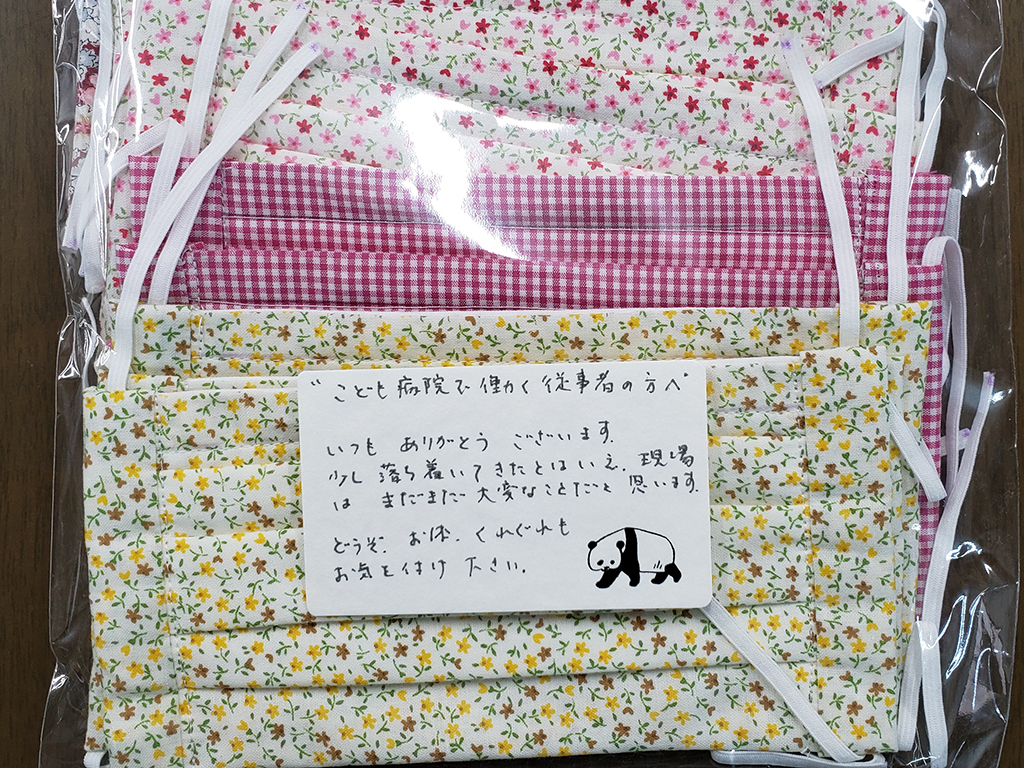 "こども病院で働く従事者の方へ"
いつも ありがとう ございます.
少し 落ち着いてきたとはいえ. 現場
は まだまだ 大変なことだと 思います.
どうぞ. お体. くれぐれも
お気を付け 下さい.